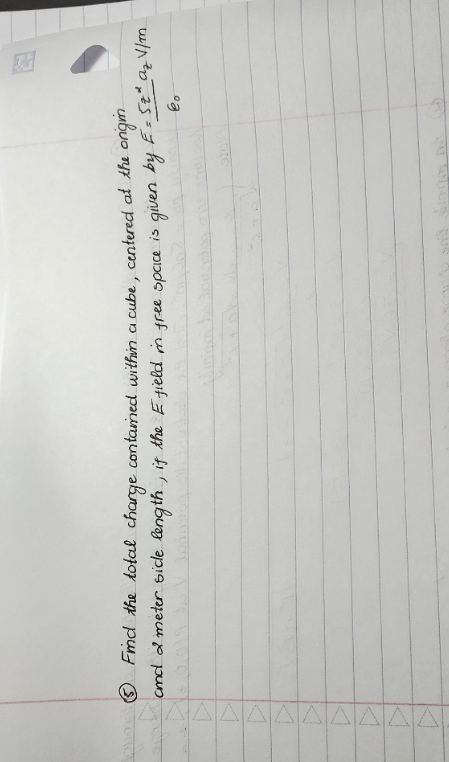 ⑤ Find the total charge contained within a cube, centered at the origin
and 2 meter side length, if the E field in free space is given by E = 5z² a_z V/m
ϵ₀